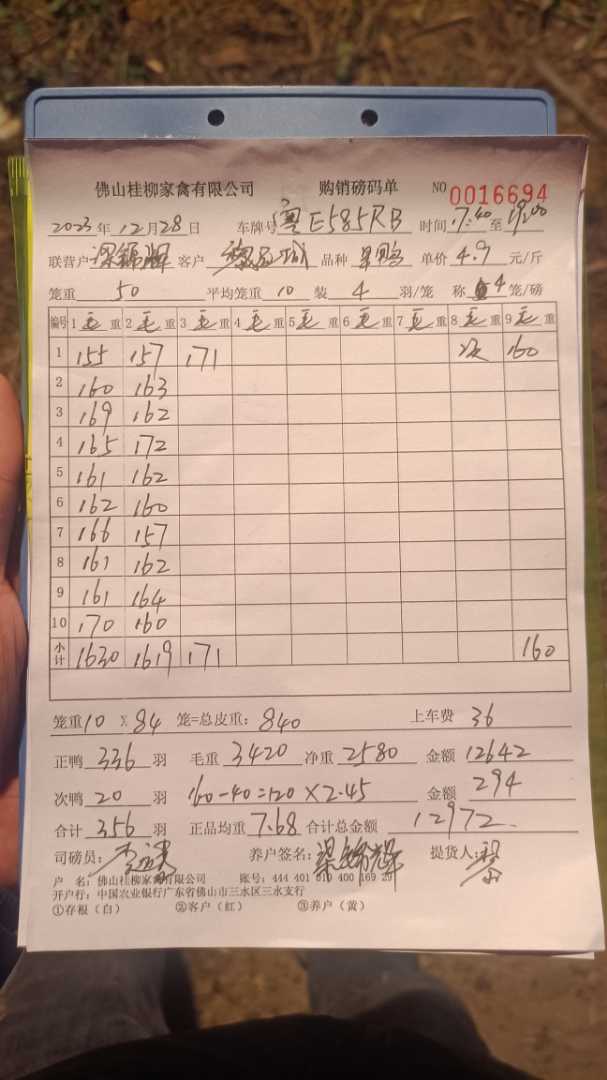 佛山桂柳家禽有限公司 购销磅码单 NO 0016694
2023年12月28日 车牌号粤E585RB 时间7:40至19:00
联营户梁锦辉 客户 品种 单价4.9元/斤
笼重50 平均笼重10装4羽/笼 称4笼/磅
编号 1毛重 2毛重 3毛重 4毛重 5毛重 6毛重 7毛重 8毛重 9毛重
1 155 157 171 次 160
2 160 163
3 169 162
4 165 172
5 161 162
6 162 160
7 166 157
8 161 162
9 161 164
10 170 160
小计 1630 1619 171 160
笼重10 X 84 笼=总皮重:840 上车费36
正鸭336羽 毛重3420净重2580 金额12642
次鸭20羽 160-40=120×2.45 金额294
合计356羽 正品均重7.68合计总金额12972.
司磅员: 养户签名:梁锦辉 提货人:黎
户 名:佛山桂柳家禽有限公司 账号:444 401 010 400 169 29
开户行:中国农业银行广东省佛山市三水区三水支行
①存根(白) ②客户(红) ③养户(黄)